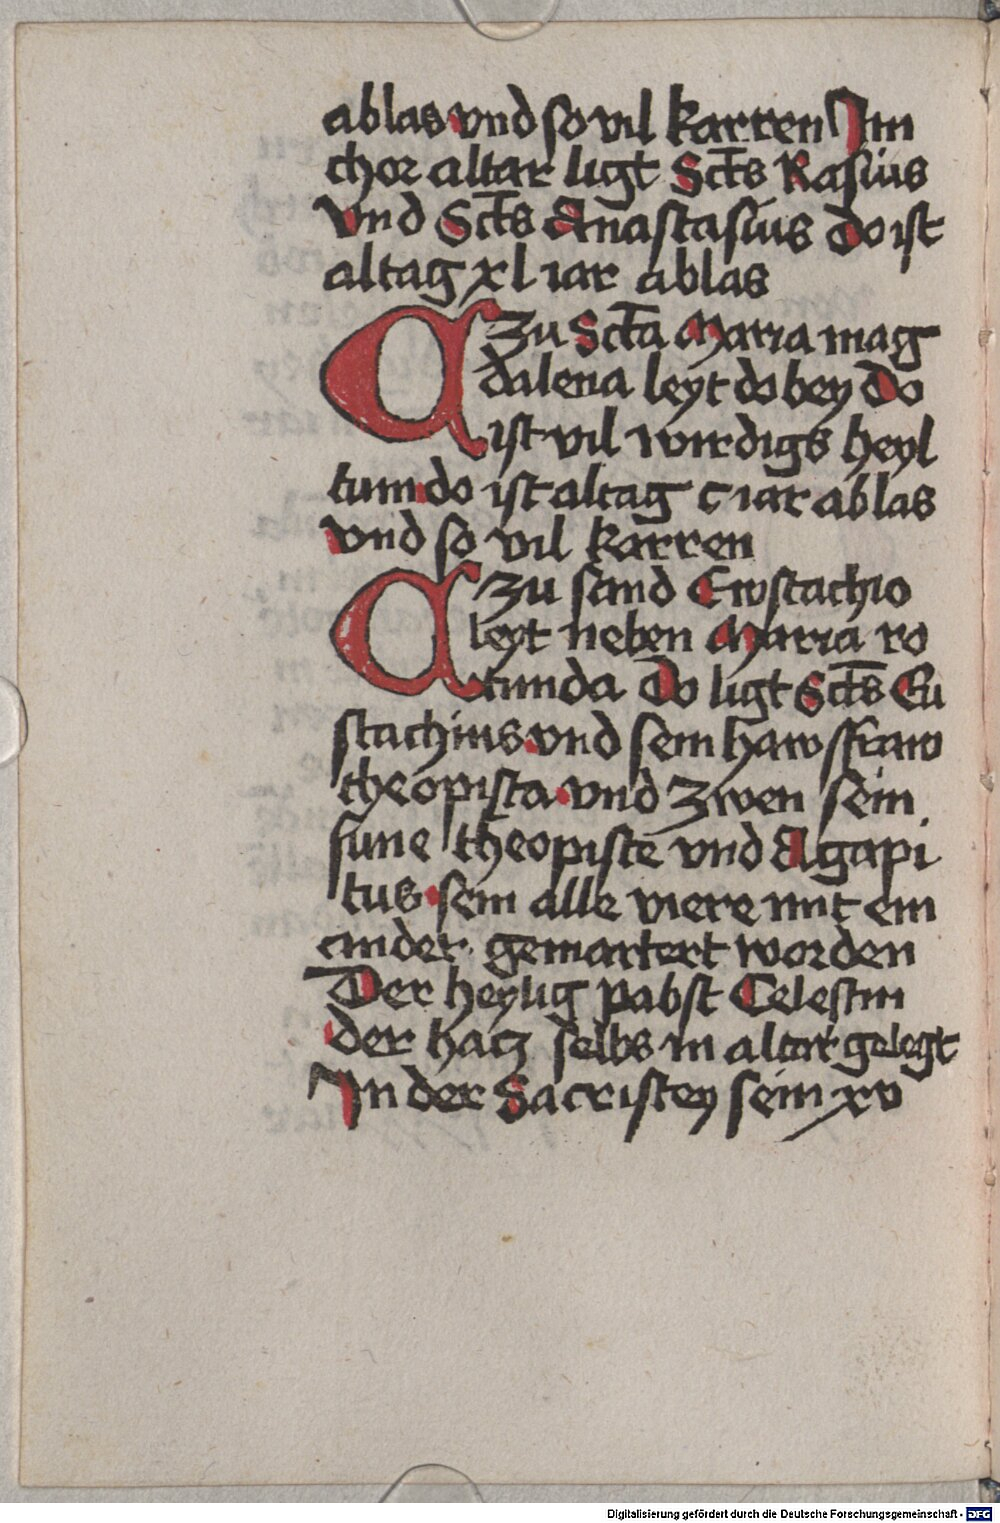 ablas vnd so vil karren Jm
chor altar ligt Sct̄s Rasius
vnd Sct̄s Anastasius do ist
altag xl iar ablas
A Zu Sct̄a Maria mag
dalena leyt do bey Do
ist vil wirdigs heyl
tum do ist altag c iar ablas
vnd so vil karren
A Zu sand Ewstachio
leyt neben Maria ro
tunda Do ligt Sct̄s Eu
stachius vnd sein hawsfraw
theopista vnd zwen sein
sune theopiste vnd Agapi
tus sein alle viere mit ein
ander gemartert worden
Der heylig pabst Celestin
der hatz selbs in altar gelegt
Jn der Sacristey sein xv
Digitalisierung gefördert durch die Deutsche Forschungsgemeinschaft - DFG